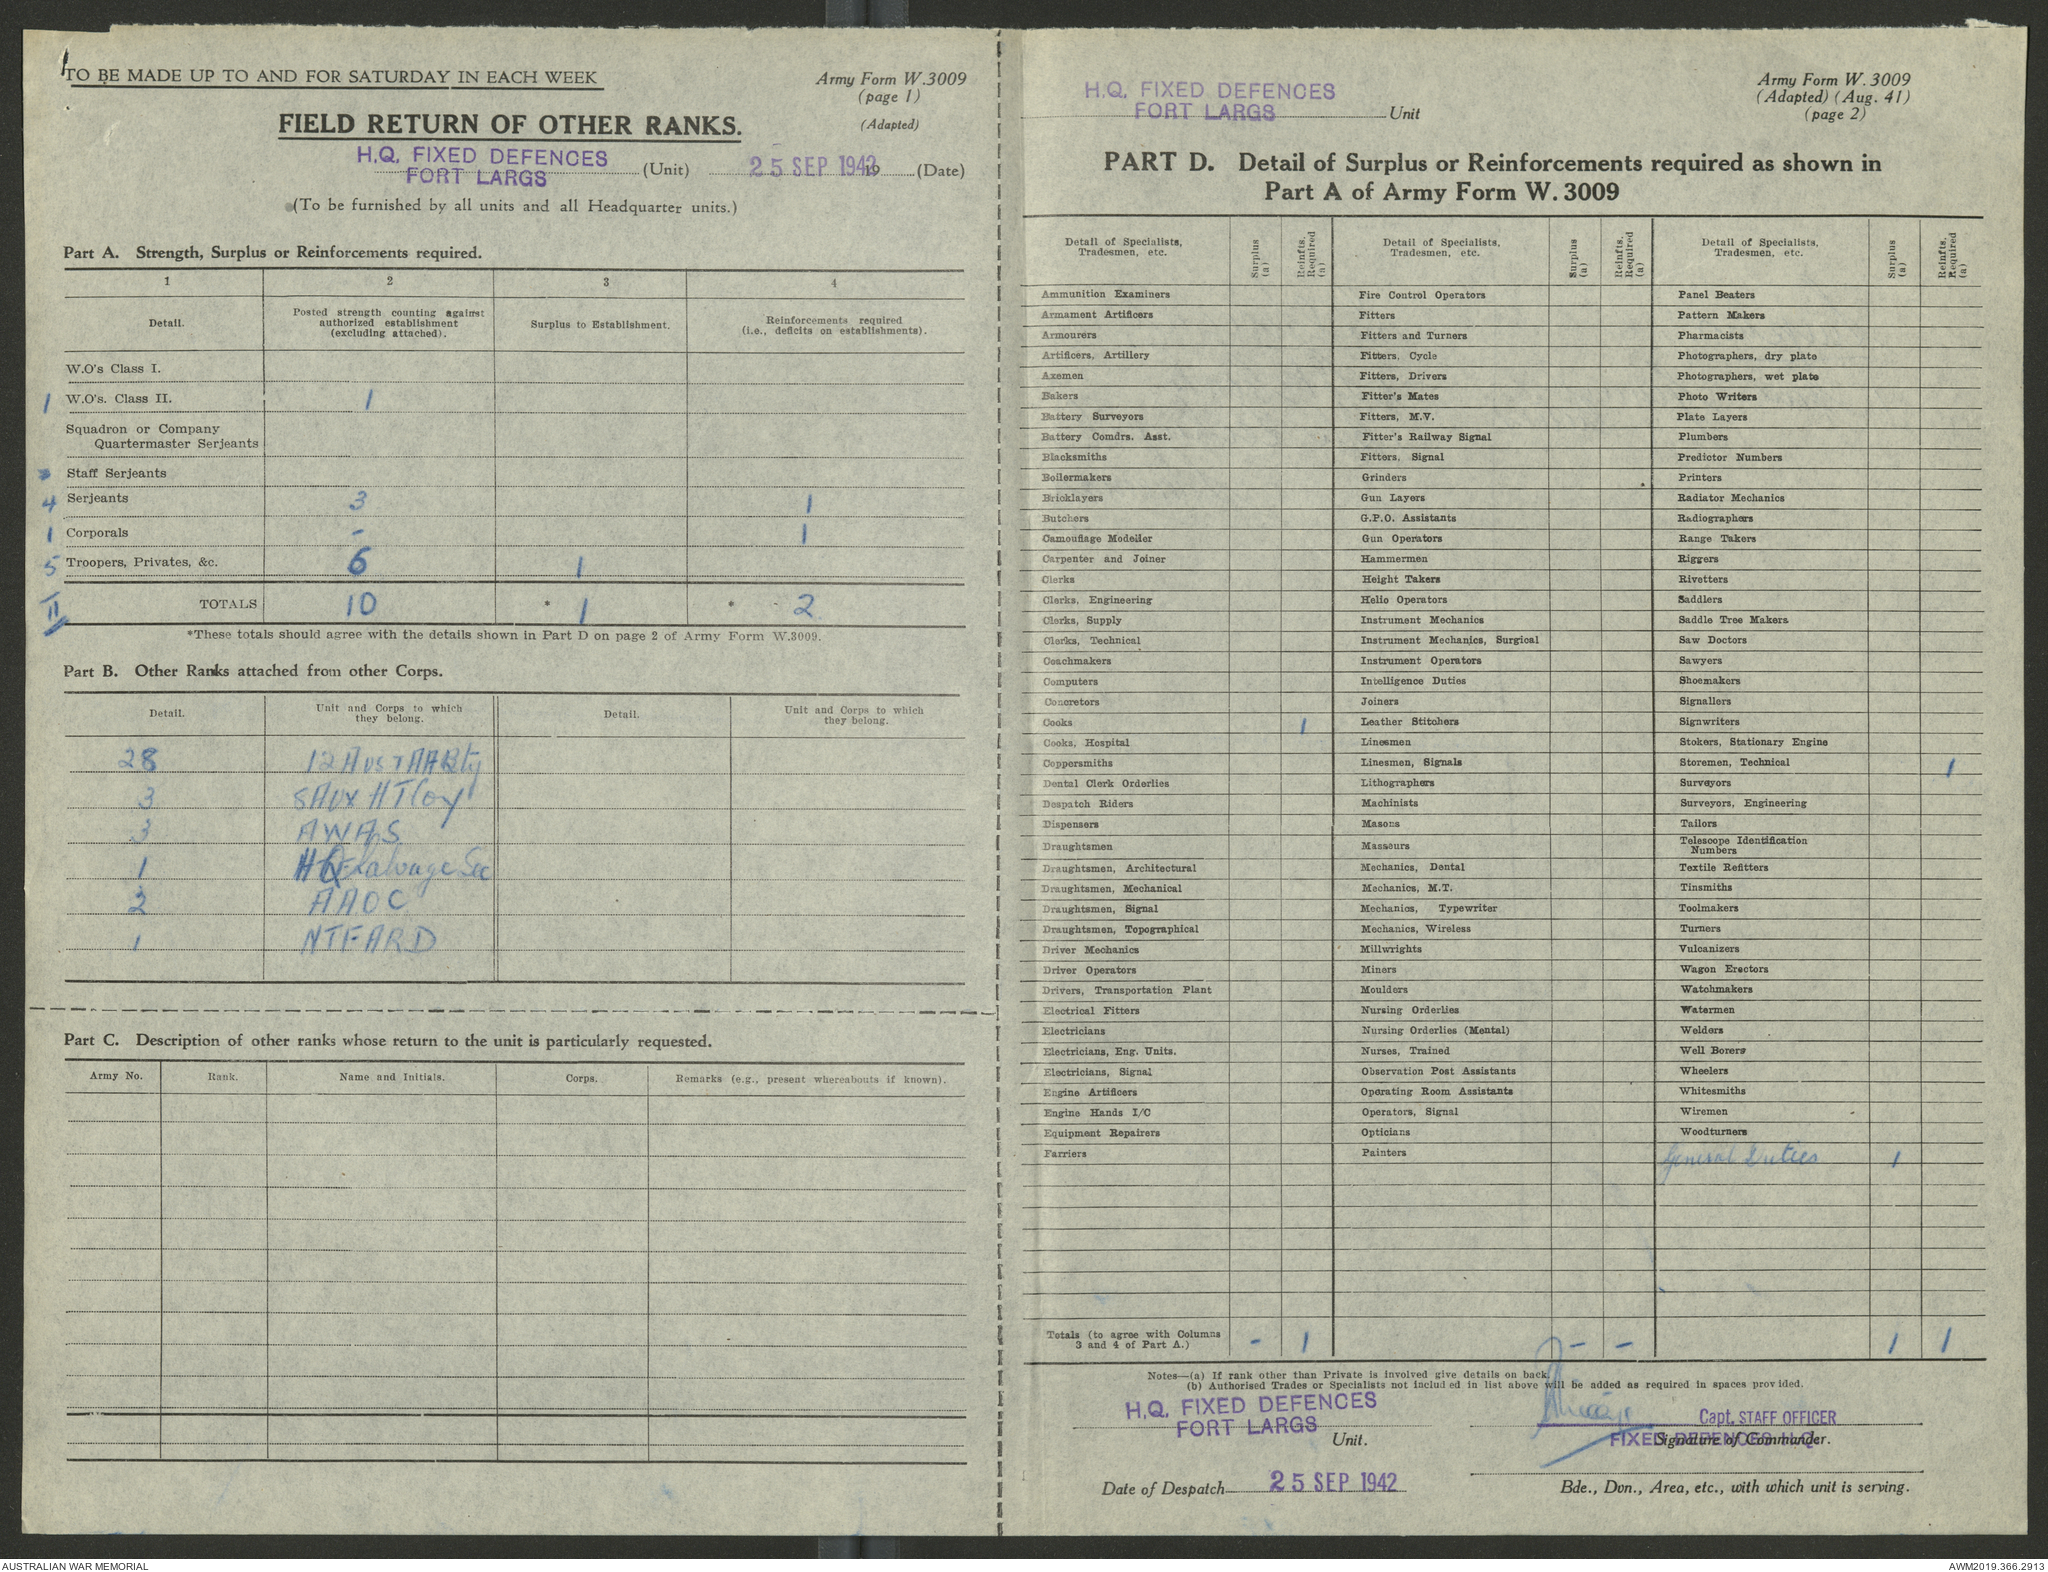 TO BE MADE UP TO AND FOR SATURDAY IN EACH WEEK
Army Form W.3009
(page 1)
(Adapted)
FIELD RETURN OF OTHER RANKS.
H.Q. FIXED DEFENCES
FORT LARGS
(Unit)
25 SEP 1942
19
(Date)
(To be furnished by all units and all Headquarter units.)
Part A. Strength, Surplus or Reinforcements required.
1 2 3 4
Detail.
Posted strength counting against
authorized establishment
(excluding attached).
Surplus to Establishment.
Reinforcements required
(i.e., deficits on establishments).
W.O's Class I.
1 W.O's. Class II. 1
Squadron or Company
Quartermaster Serjeants
Staff Serjeants
4 Serjeants 3 1
1 Corporals - 1
5 Troopers, Privates, &c. 6 1
11 TOTALS 10 * 1 * 2
*These totals should agree with the details shown in Part D on page 2 of Army Form W.3009.
Part B. Other Ranks attached from other Corps.
Detail.
Unit and Corps to which
they belong.
Detail.
Unit and Corps to which
they belong.
28 12 Aust AA Bty
3 SAux HT Coy
3 AWAS
1 Salvage Sec
2 AAOC
1 NTFARD
Part C. Description of other ranks whose return to the unit is particularly requested.
Army No. Rank. Name and Initials. Corps. Remarks (e.g., present whereabouts if known).
H.Q. FIXED DEFENCES
FORT LARGS
Unit
Army Form W. 3009
(Adapted) (Aug. 41)
(page 2)
PART D. Detail of Surplus or Reinforcements required as shown in
Part A of Army Form W. 3009
Detail of Specialists,
Tradesmen, etc.
Surplus
(a)
Reinfts.
Required
(a)
Detail of Specialists,
Tradesmen, etc.
Surplus
(a)
Reinfts.
Required
(a)
Detail of Specialists,
Tradesmen, etc.
Surplus
(a)
Reinfts.
Required
(a)
Ammunition Examiners Fire Control Operators Panel Beaters
Armament Artificers Fitters Pattern Makers
Armourers Fitters and Turners Pharmacists
Artificers, Artillery Fitters, Cycle Photographers, dry plate
Axemen Fitters, Drivers Photographers, wet plate
Bakers Fitter's Mates Photo Writers
Battery Surveyors Fitters, M.V. Plate Layers
Battery Comdrs. Asst. Fitter's Railway Signal Plumbers
Blacksmiths Fitters, Signal Predictor Numbers
Boilermakers Grinders Printers
Bricklayers Gun Layers Radiator Mechanics
Butchers G.P.O. Assistants Radiographers
Camouflage Modeller Gun Operators Range Takers
Carpenter and Joiner Hammermen Riggers
Clerks Height Takers Rivetters
Clerks, Engineering Helio Operators Saddlers
Clerks, Supply Instrument Mechanics Saddle Tree Makers
Clerks, Technical Instrument Mechanics, Surgical Saw Doctors
Coachmakers Instrument Operators Sawyers
Computers Intelligence Duties Shoemakers
Concretors Joiners Signallers
Cooks 1 Leather Stitchers Signwriters
Cooks, Hospital Linesmen Stokers, Stationary Engine
Coppersmiths Linesmen, Signals Storemen, Technical 1
Dental Clerk Orderlies Lithographers Surveyors
Despatch Riders Machinists Surveyors, Engineering
Dispensers Masons Tailors
Draughtsmen Masseurs Telescope Identification
Numbers
Draughtsmen, Architectural Mechanics, Dental Textile Refitters
Draughtsmen, Mechanical Mechanics, M.T. Tinsmiths
Draughtsmen, Signal Mechanics, Typewriter Toolmakers
Draughtsmen, Topographical Mechanics, Wireless Turners
Driver Mechanics Millwrights Vulcanizers
Driver Operators Miners Wagon Erectors
Drivers, Transportation Plant Moulders Watchmakers
Electrical Fitters Nursing Orderlies Watermen
Electricians Nursing Orderlies (Mental) Welders
Electricians, Eng. Units. Nurses, Trained Well Borers
Electricians, Signal Observation Post Assistants Wheelers
Engine Artificers Operating Room Assistants Whitesmiths
Engine Hands I/C Operators, Signal Wiremen
Equipment Repairers Opticians Woodturners
Farriers Painters General Duties 1
Totals (to agree with Columns
3 and 4 of Part A.) - 1 - - 1 1
Notes—(a) If rank other than Private is involved give details on back.
(b) Authorised Trades or Specialists not included in list above will be added as required in spaces provided.
H.Q. FIXED DEFENCES
FORT LARGS
Unit.
Capt. STAFF OFFICER
FIXED DEFENCES H.Q.
Signature of Commander.
Date of Despatch 25 SEP 1942
Bde., Don., Area, etc., with which unit is serving.
AUSTRALIAN WAR MEMORIAL
AWM2019.366.2913